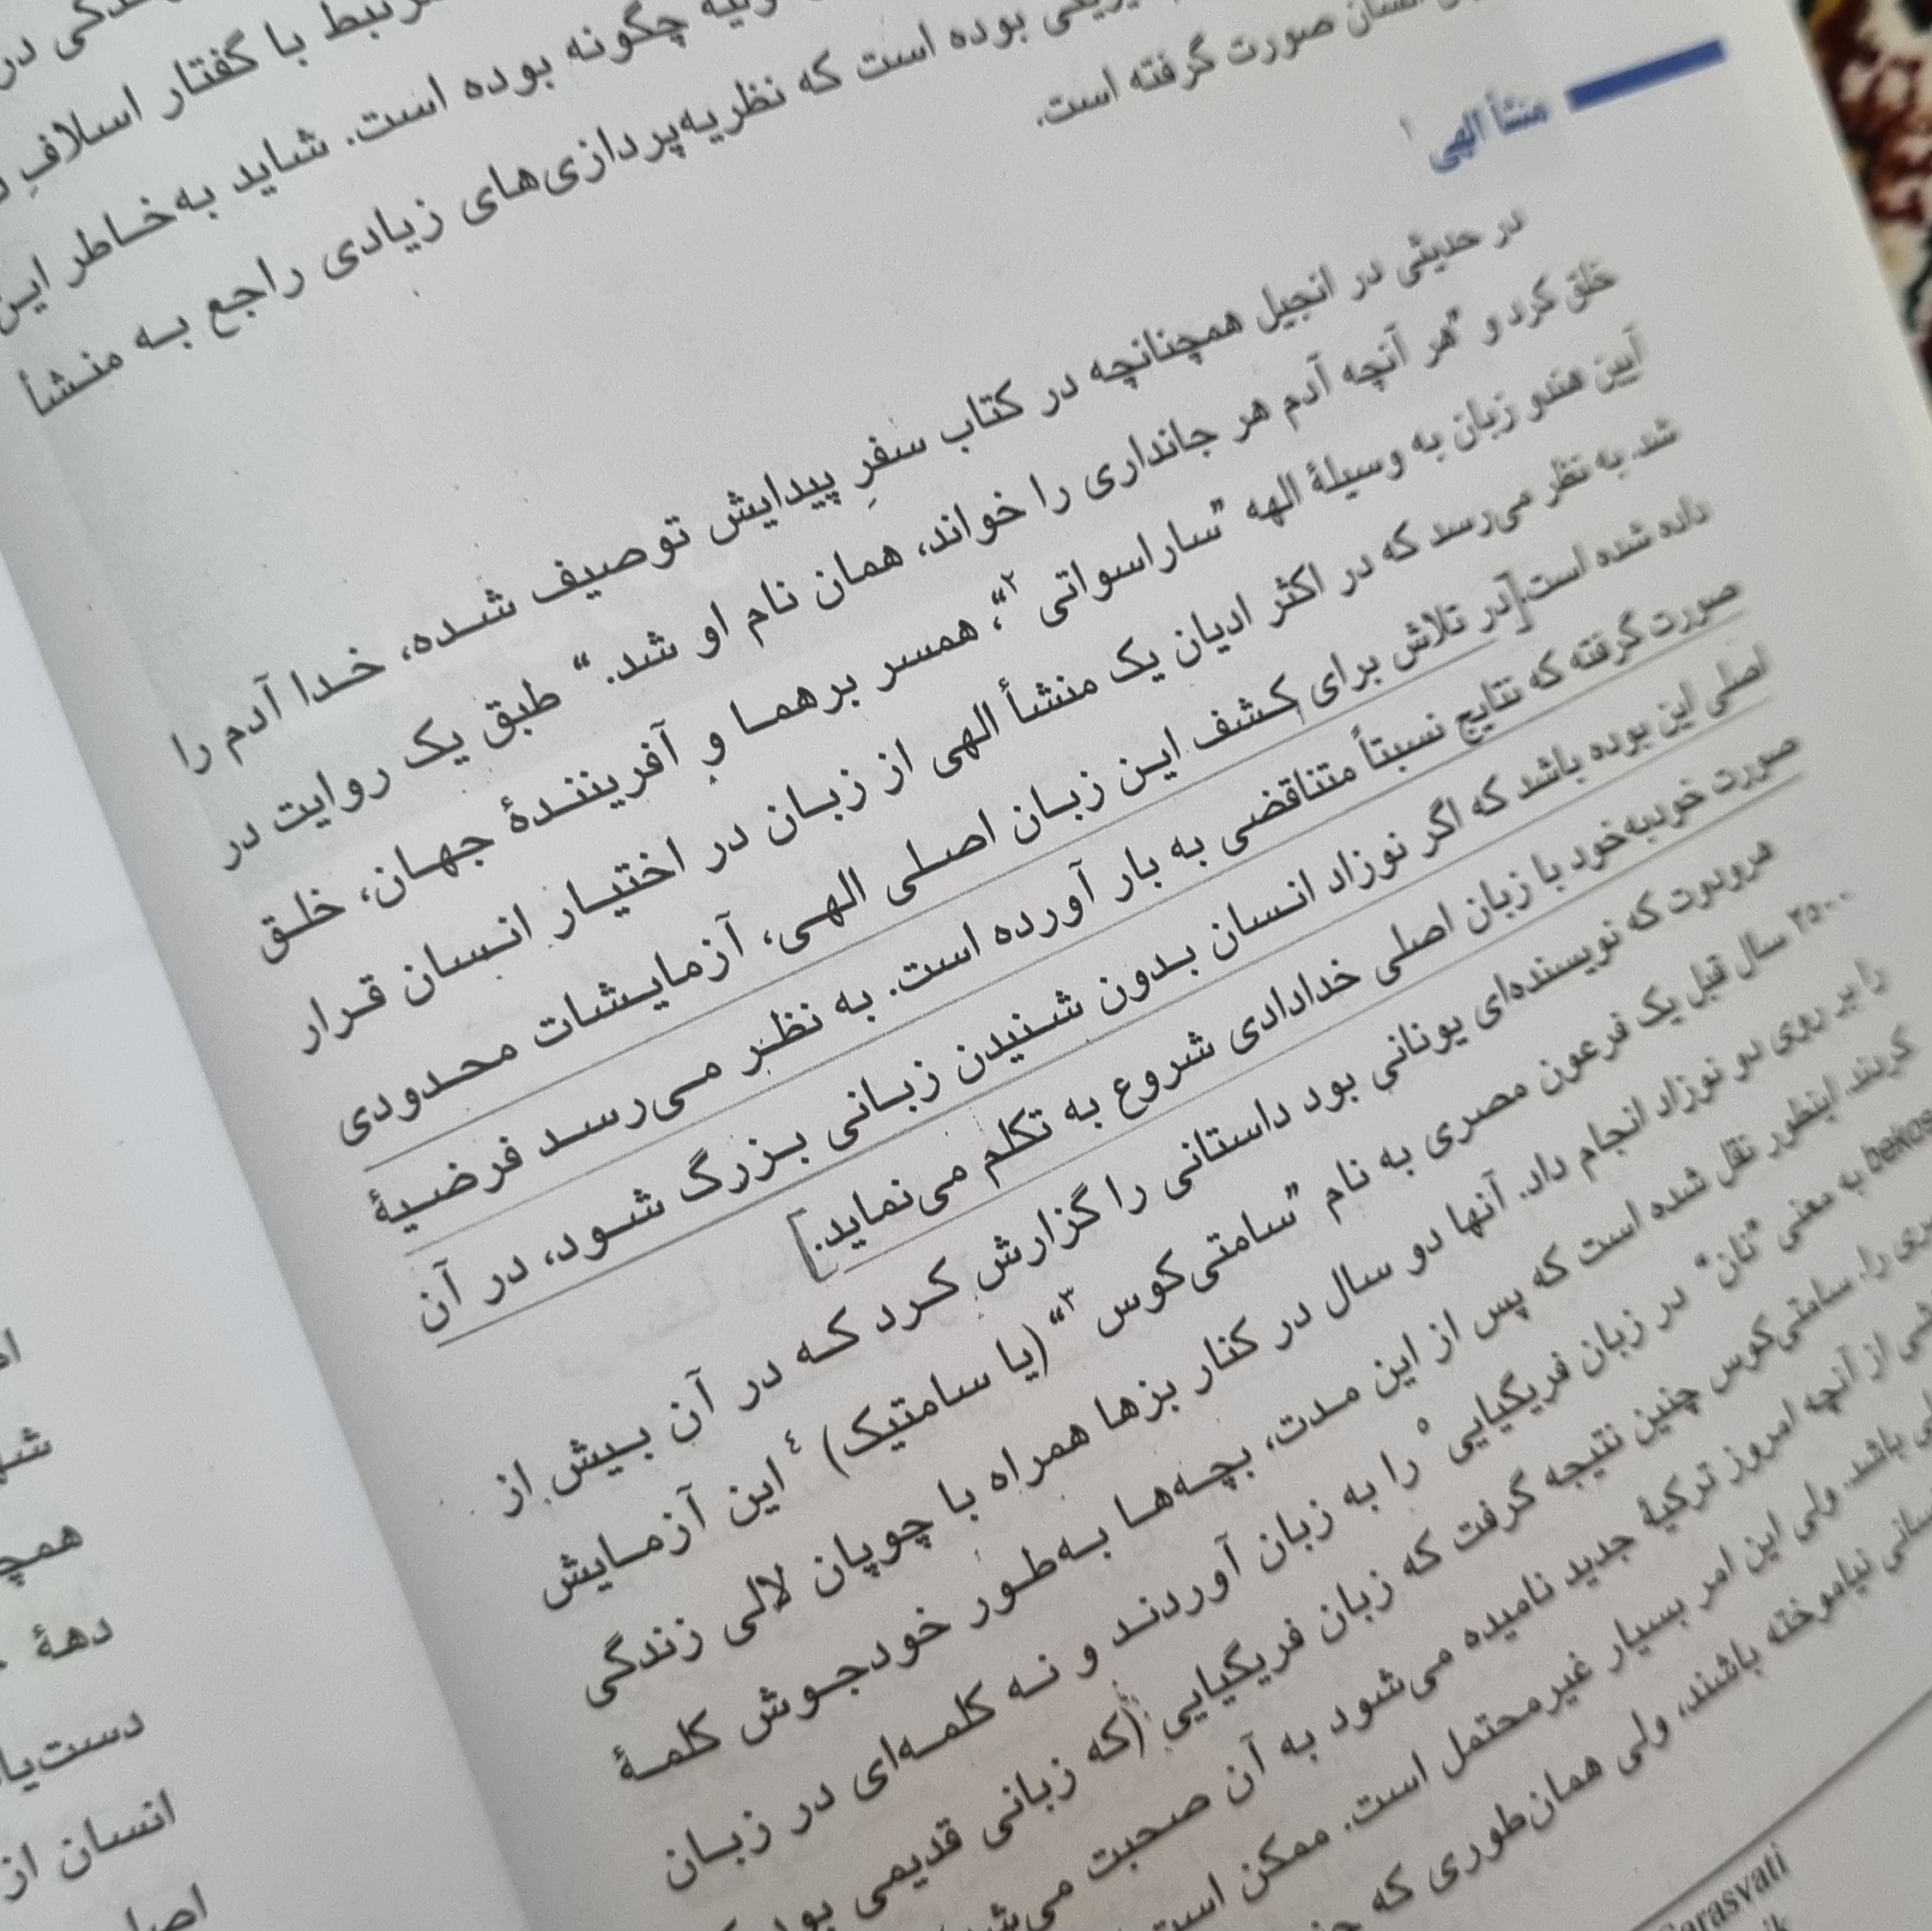 زندگی در
مرتبط با گفتار اسلافِ
چگونه بوده است. شاید به‌خاطر این
بوده است که نظریه‌پردازی‌های زیادی راجع به منشأ
انسان صورت گرفته است.
منشأ الهی ۱
در حدیثی در انجیل همچنانچه در کتاب سفرِ پیدایش توصیف شده، خدا آدم را
خلق کرد و "هر آنچه آدم هر جانداری را خواند، همان نام او شد." طبق یک روایت در
آیین هندو زبان به وسیلهٔ الهه "ساراسواتی ۲"، همسر برهما و آفرینندهٔ جهان، خلق
شد. به نظر می‌رسد که در اکثر ادیان یک منشأ الهی از زبان در اختیار انسان قرار
داده شده است. [در تلاش برای کشف این زبان اصلی الهی، آزمایشات محدودی
صورت گرفته که نتایج نسبتاً متناقضی به بار آورده است. به نظر می‌رسد فرضیهٔ
اصلی این بوده باشد که اگر نوزاد انسان بدون شنیدن زبانی بزرگ شود، در آن
صورت خودبه‌خود با زبان اصلی خدادادی شروع به تکلم می‌نماید.]
هرودوت که نویسنده‌ای یونانی بود داستانی را گزارش کرد که در آن بیش از
۲۵۰۰ سال قبل یک فرعون مصری به نام "سامتی‌کوس ۳" (یا سامتیک) ٤ این آزمایش
را بر روی دو نوزاد انجام داد. آنها دو سال در کنار بزها همراه با چوپان لالی زندگی
کردند. اینطور نقل شده است که پس از این مدت، بچه‌ها به‌طور خودجوش کلمهٔ
bekos به معنی "نان" در زبان فریگیایی ٥ را به زبان آوردند و نه کلمه‌ای در زبان
را. سامتی‌کوس چنین نتیجه گرفت که زبان فریگیایی (که زبانی قدیمی بود
از آنچه امروز ترکیهٔ جدید نامیده می‌شود به آن صحبت
باشد. ولی این امر بسیار غیرمحتمل است. ممکن است
نیاموخته باشند، ولی همان‌طوری که
Sarasvati
همچ
دههٔ
انسان از